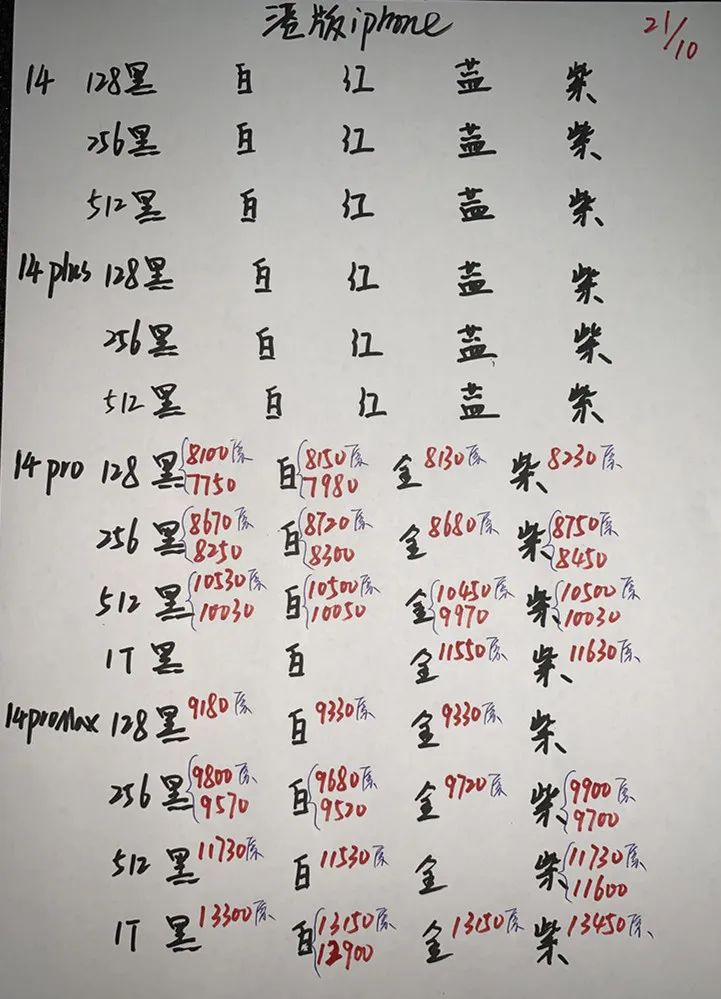 港版iphone 21/10
14 128黑 白 红 蓝 紫
256黑 白 红 蓝 紫
512黑 白 红 蓝 紫
14 plus 128黑 白 红 蓝 紫
256黑 白 红 蓝 紫
512黑 白 红 蓝 紫
14 pro 128 黑 8100原 白 8150原 金 8130原 紫 8230原
7750 7980
256 黑 8670原 白 8720原 金 8680原 紫 8750原
8250 8300 8450
512 黑 10530原 白 10500原 金 10450原 紫 10500原
10030 10050 9970 10030
1T 黑 白 金 11550原 紫 11630原
14 pro Max 128 黑 9180原 白 9330原 金 9330原 紫
256 黑 9800原 白 9680原 金 9720原 紫 9900原
9570 9520 9700
512 黑 11730原 白 11530原 金 紫 11730原
11600
1T 黑 13300原 白 13150原 金 13150原 紫 13450原
12900